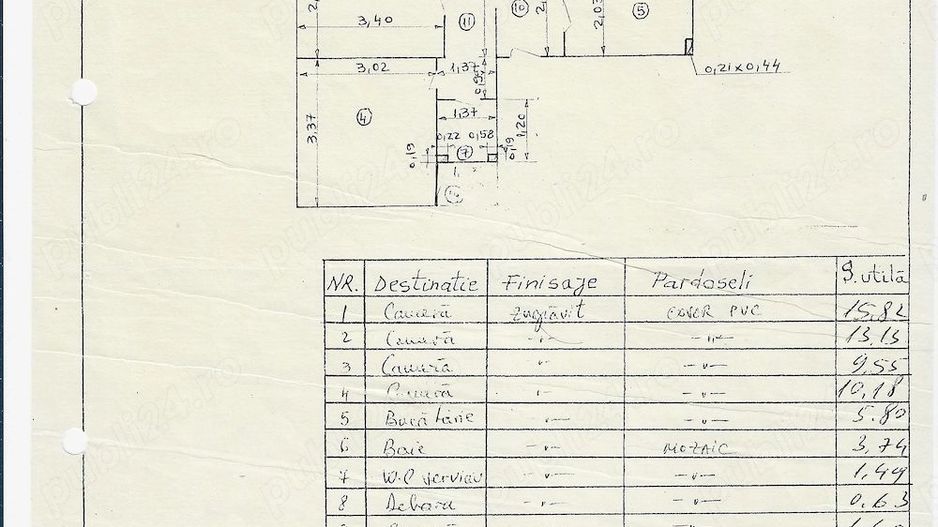 3,40
11
10
5
3,02
1,37
0,21x0,44
4
3,37
1,37
1,20
0,22 0,58
0,19
7
0,19
NR. Destinatie Finisaje Pardoseli S. utilă
1 Cameră Zugrăvit COVOR PVC 15,82
2 Cameră -"- -"- 13,13
3 Cameră -"- -"- 9,55
4 Cameră -"- -"- 10,18
5 Bucătărie -"- -"- 5.80
6 Baie -"- MOZAIC 3,74
7 W.C serviciu -"- -"- 1,49
8 Debara -"- -"- 0,63
publi24.ro